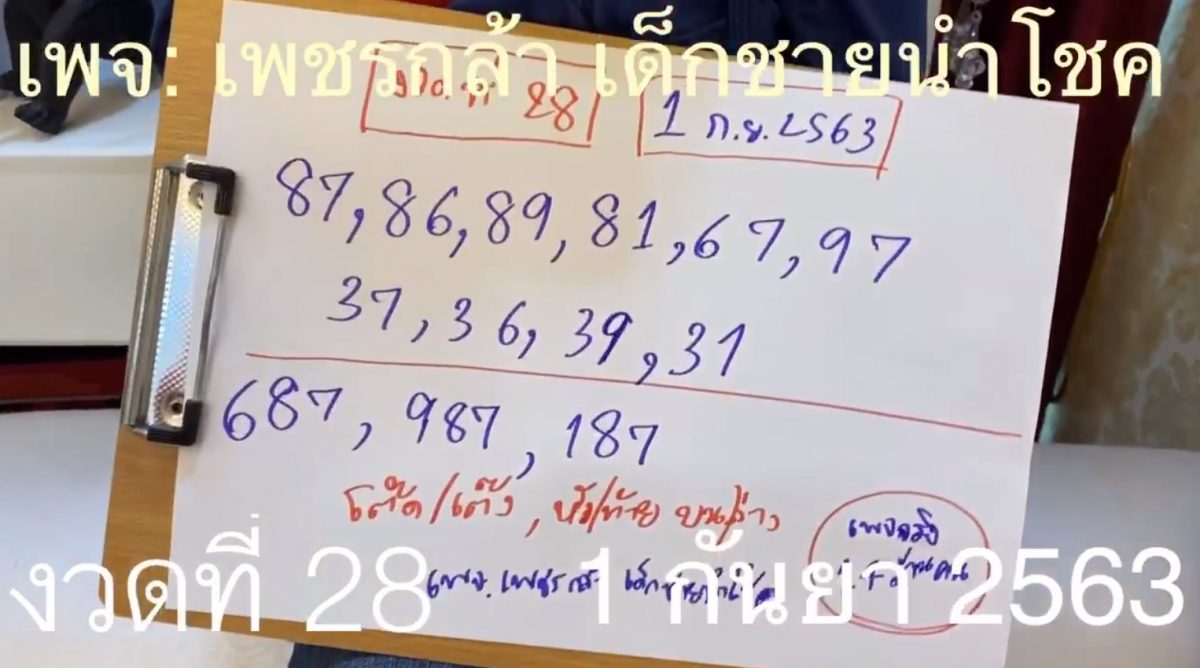 เพจ: เพชรกล้า เด็กชายนำโชค
งวดที่ 28
1 ก.ย. 2563
87, 86, 89, 81, 67, 97
37, 36, 39, 31
687, 987, 187
โต๊ด/เต๊ง, หัว/ท้าย บน/ล่าง
เพจจริง
คน
เพจ. เพชรกล้า เด็กชายนำโชค
งวดที่ 28 1 กันยา 2563